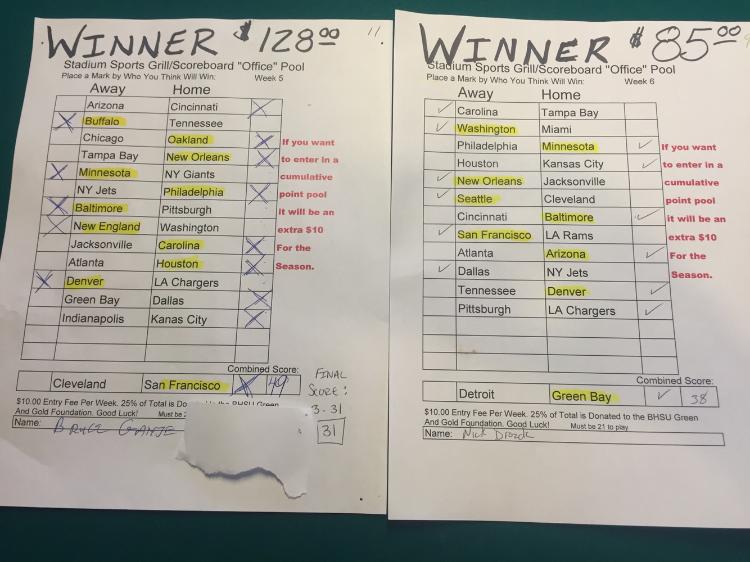 WINNER $128.00
11
Stadium Sports Grill/Scoreboard "Office" Pool
Place a Mark by Who You Think Will Win: Week 5
Away Home
Arizona Cincinnati X
X Buffalo Tennessee
Chicago Oakland X
Tampa Bay New Orleans X
X Minnesota NY Giants
NY Jets Philadelphia X
X Baltimore Pittsburgh
X New England Washington
Jacksonville Carolina X
Atlanta Houston X
X Denver LA Chargers
Green Bay Dallas X
Indianapolis Kanas City X
If you want
to enter in a
cumulative
point pool
it will be an
extra $10
For the
Season.
Combined Score:
Cleveland San Francisco X 49
FINAL
SCORE:
3-31
31
$10.00 Entry Fee Per Week. 25% of Total is Donated to the BHSU Green
And Gold Foundation. Good Luck! Must be
Name: Bruce
WINNER $85.00
Stadium Sports Grill/Scoreboard "Office" Pool
Place a Mark by Who You Think Will Win: Week 6
Away Home
✓ Carolina Tampa Bay
✓ Washington Miami
Philadelphia Minnesota ✓
Houston Kansas City ✓
✓ New Orleans Jacksonville
✓ Seattle Cleveland
Cincinnati Baltimore ✓
✓ San Francisco LA Rams
Atlanta Arizona ✓
✓ Dallas NY Jets
Tennessee Denver ✓
Pittsburgh LA Chargers ✓
If you want
to enter in a
cumulative
point pool
it will be an
extra $10
For the
Season.
Combined Score:
Detroit Green Bay ✓ 38
$10.00 Entry Fee Per Week. 25% of Total is Donated to the BHSU Green
And Gold Foundation. Good Luck! Must be 21 to play
Name: Nick